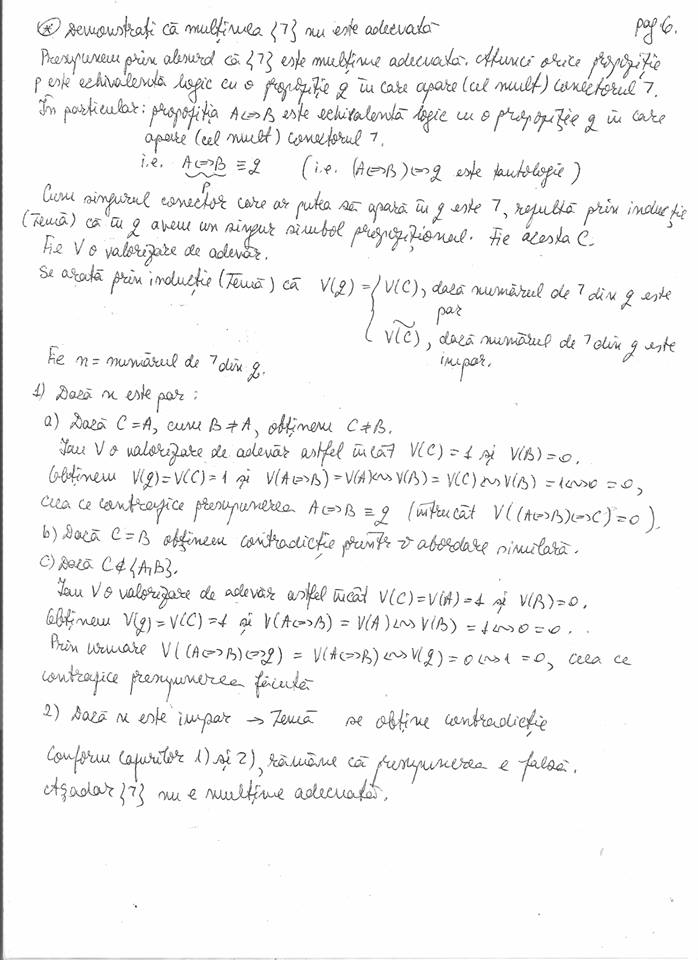 * Demonstrați că mulțimea {7} nu este adecvată pag 6.
Presupunem prin absurd că {7} este mulțime adecvată. Atunci orice propoziție
p este echivalentă logic cu o propoziție q în care apare (cel mult) conectorul 7.
În particular: propoziția A⇔B este echivalentă logic cu o propoziție q în care
apare (cel mult) conectorul 7.
i.e. A⇔B ≡ q (i.e. (A⇔B)⇔q este tautologie)
p
Cum singurul conector care ar putea să apară în q este 7, rezultă prin inducție
(Temă) că în q avem un singur simbol propozițional. Fie acesta C.
Fie V o valorizare de adevăr.
Se arată prin inducție (Temă) că V(q) = { V(C), dacă numărul de 7 din q este
par
~V(C), dacă numărul de 7 din q este
impar.
Fie n = numărul de 7 din q.
1) Dacă n este par:
a) Dacă C = A, cum B ≠ A, obținem C ≠ B.
Iau V o valorizare de adevăr astfel încât V(C) = 1 și V(B) = 0.
Obținem V(q) = V(C) = 1 și V(A⇔B) = V(A)⇝V(B) = V(C)⇝V(B) = 1⇝0 = 0,
ceea ce contrazice presupunerea A⇔B ≡ q (întrucât V((A⇔B)⇔C) = 0).
b) Dacă C = B obținem contradicție printr-o abordare similară.
c) Dacă C ∉ {A,B}.
Iau V o valorizare de adevăr astfel încât V(C) = V(A) = 1 și V(B) = 0.
Obținem V(q) = V(C) = 1 și V(A⇔B) = V(A)⇝V(B) = 1⇝0 = 0.
Prin urmare V((A⇔B)⇔q) = V(A⇔B)⇝V(q) = 0⇝1 = 0, ceea ce
contrazice presupunerea făcută
2) Dacă n este impar → Temă se obține contradicție
Conform cazurilor 1) și 2), rămâne că presupunerea e falsă.
Așadar {7} nu e mulțime adecvată.